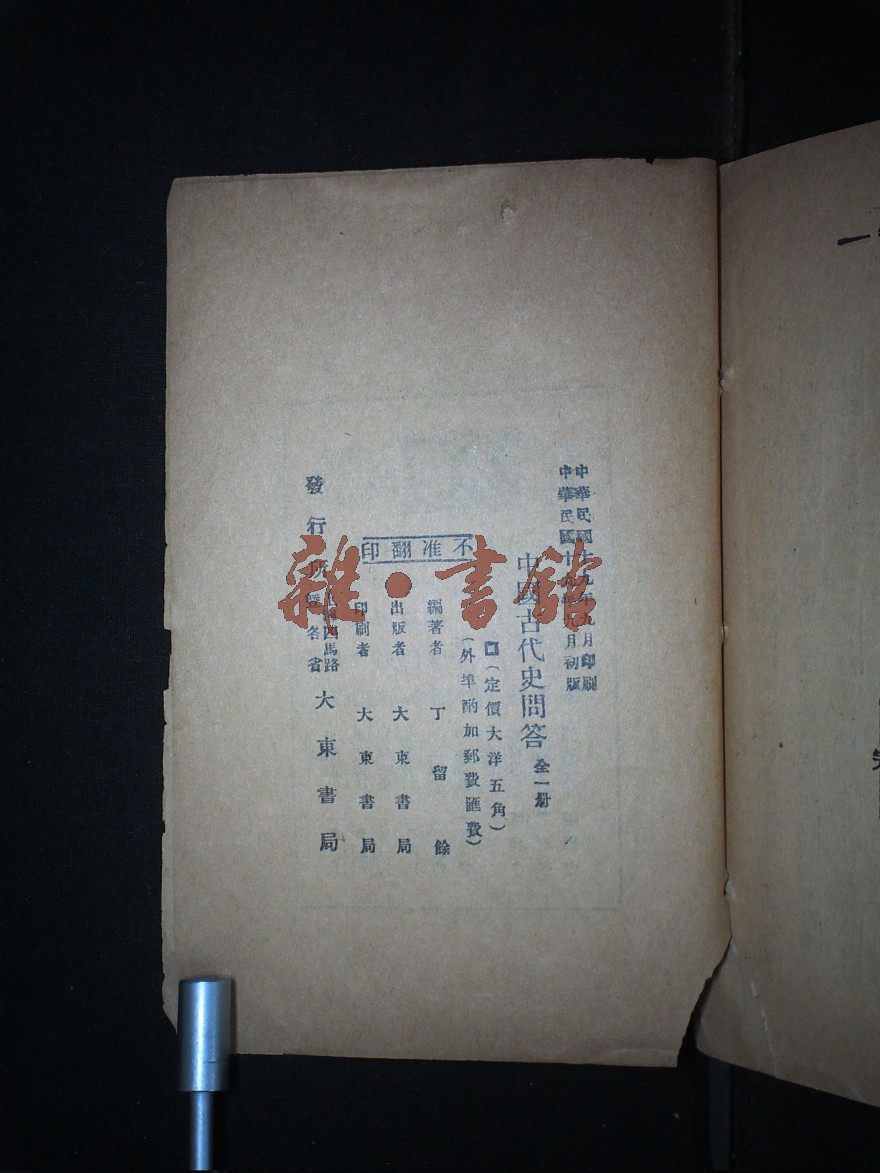 中華民國十九年九月印刷
中華民國十九年九月初版
中國古代史問答 全一册
(定價大洋五角)
(外埠酌加郵費匯費)
不准翻印
編著者 丁留餘
出版者 大東書局
印刷者 大東書局
發行所 上海四馬路暨各省 大東書局
雜·書館
一